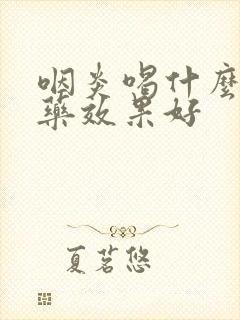 咽炎喝什麼
藥效果好
夏茗悠